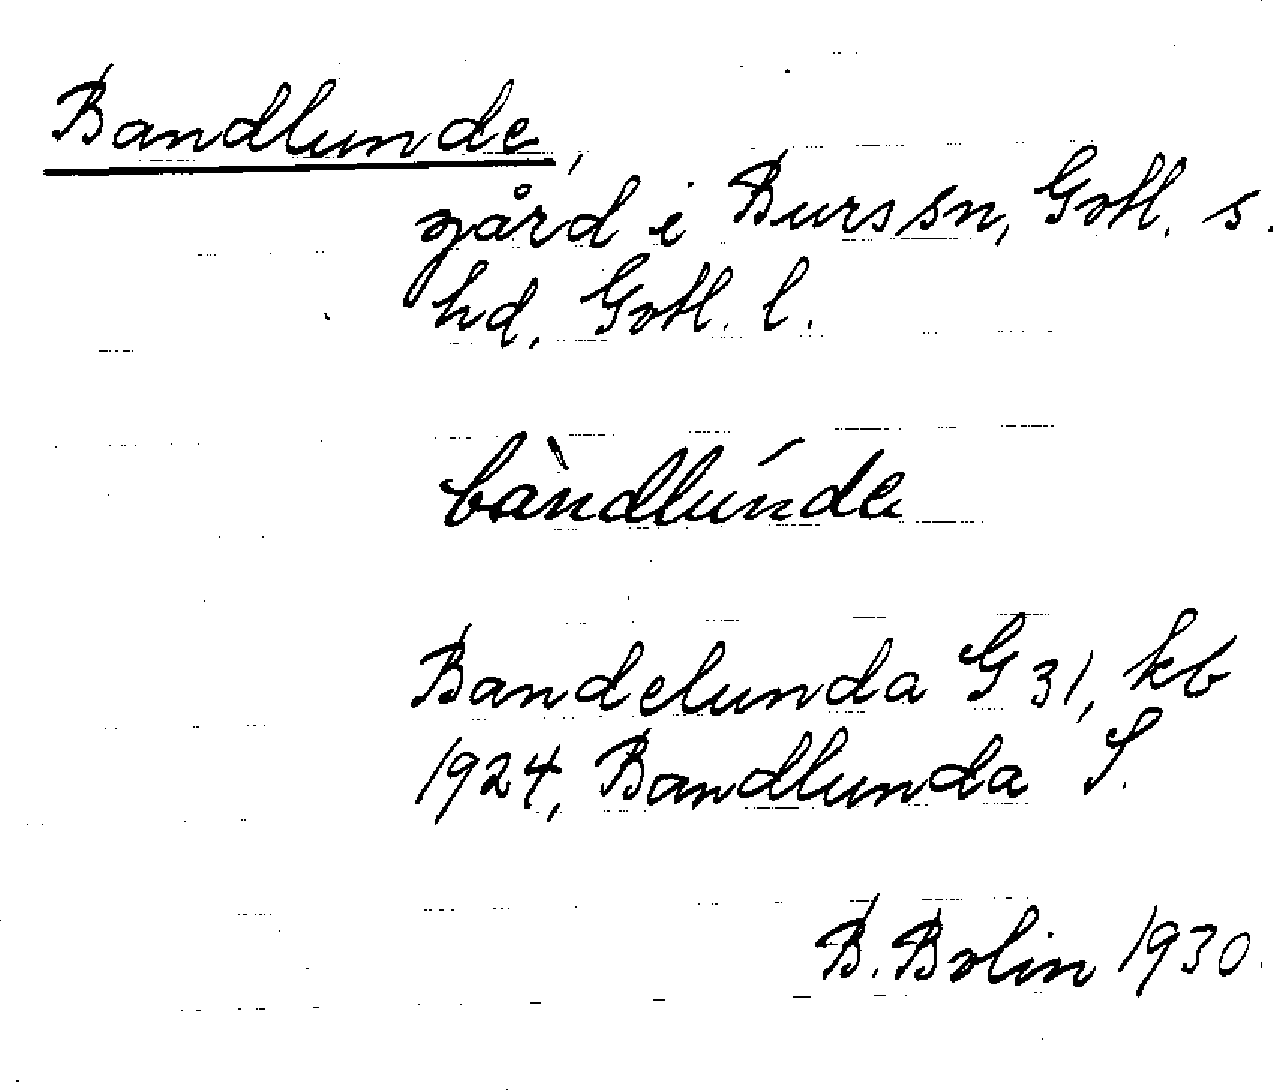 Bandlunde,
gård i Burs sn, Gotl. s.
hd, Gotl. l.
bàndlúnde
Bandelunda G 31, kb
1924, Bandlunda S.
B. Bolin 1930.